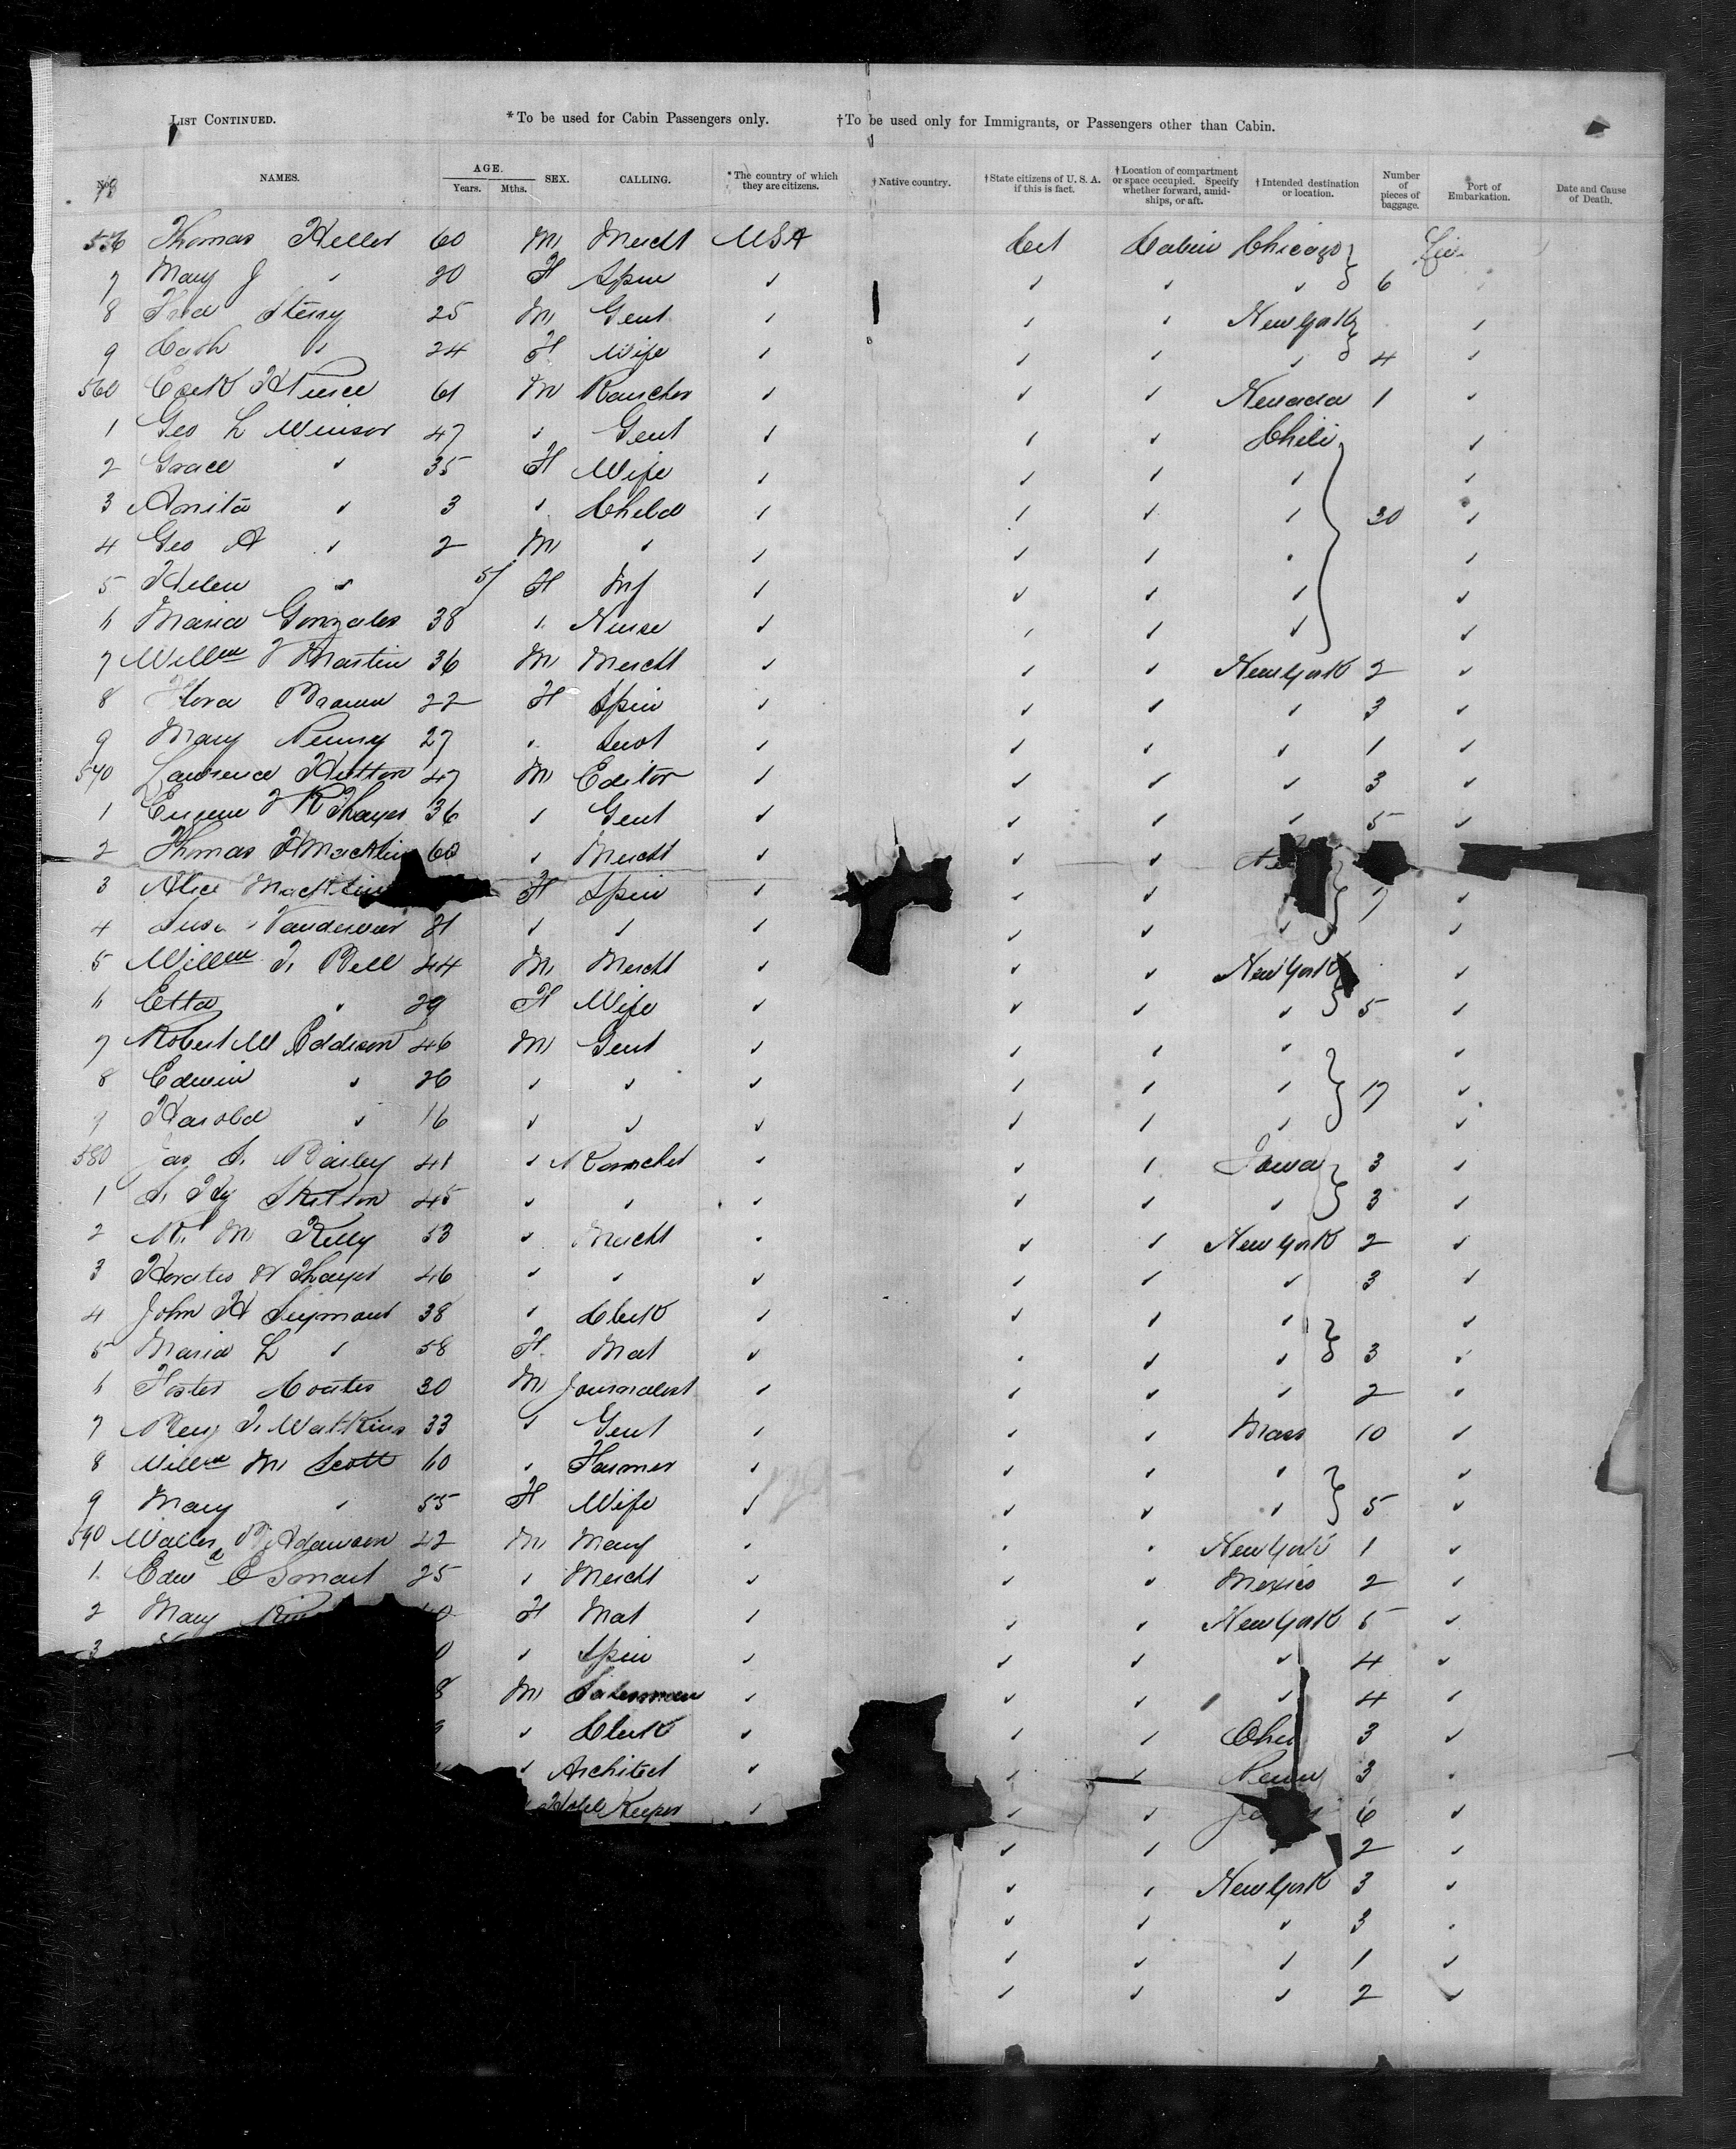 LIST CONTINUED. *To be used for Cabin Passengers only. †To be used only for Immigrants, or Passengers other than Cabin.
No. NAMES. AGE. Years. Mths. SEX. CALLING. *The country of which they are citizens. †Native country. †State citizens of U. S. A. if this is fact. †Location of compartment or space occupied. Specify whether forward, amidships, or aft. †Intended destination or location. Number of pieces of baggage. Port of Embarkation. Date and Cause of Death.
556 Thomas Heller 60 M Mercht USA Cit Cabin Chicago
7 Mary J 20 F Spin 6
8 Fred Sterry 25 M Gent New York
9 24 F Wife 4
560 61 M Rancher Nevada 1
1 Geo L Winsor 47 Gent Chili
2 Grace 35 F Wife
3 Anita 3 Child 30
4 Geo A 2 M
5 Helen 5/ F Inf
6 Maria Gonzales 38 Nurse
7 Willm J Martin 36 M Mercht New York 2
8 Flora Brown 22 F Spin 3
9 Mary Penny 27 1
570 Laurence Hutton 47 M Editor 3
1 Eugene V R Thayer 36 Gent 5
2 Thomas 60 Mercht
3 Alice F Spin 7
4 21
5 Willm T. Bell 44 M Mercht New York
6 Etta 29 F Wife 5
7 Robert W Addison 46 M Gent
8 Edwin 26 17
9 Harold 16
580 Jas S. Bailey 41 Rancher Iowa 3
1 S. Hy Skelton 45 3
2 M Kelly 53 Mercht New York 2
3 Horatio N Thayer 46 3
4 John H 38 Clerk
5 Maria L 58 F Mat 3
6 Foster Coates 30 M Journalist 2
7 Benj T. Watkins 33 Gent Mass 10
8 Willm M Scott 60 Farmer
9 Mary 55 F Wife 5
590 Walter R Adamson 42 M Manf New York 1
1 Edwd E Smart 25 Mercht Mexico 2
2 Mary F Mat New York 5
3 0 Spin 4
8 M Salesman 4
Clerk Ohio 3
Architect Penn 3
Hotel Keeper 6
2
New York 3
3
1
2